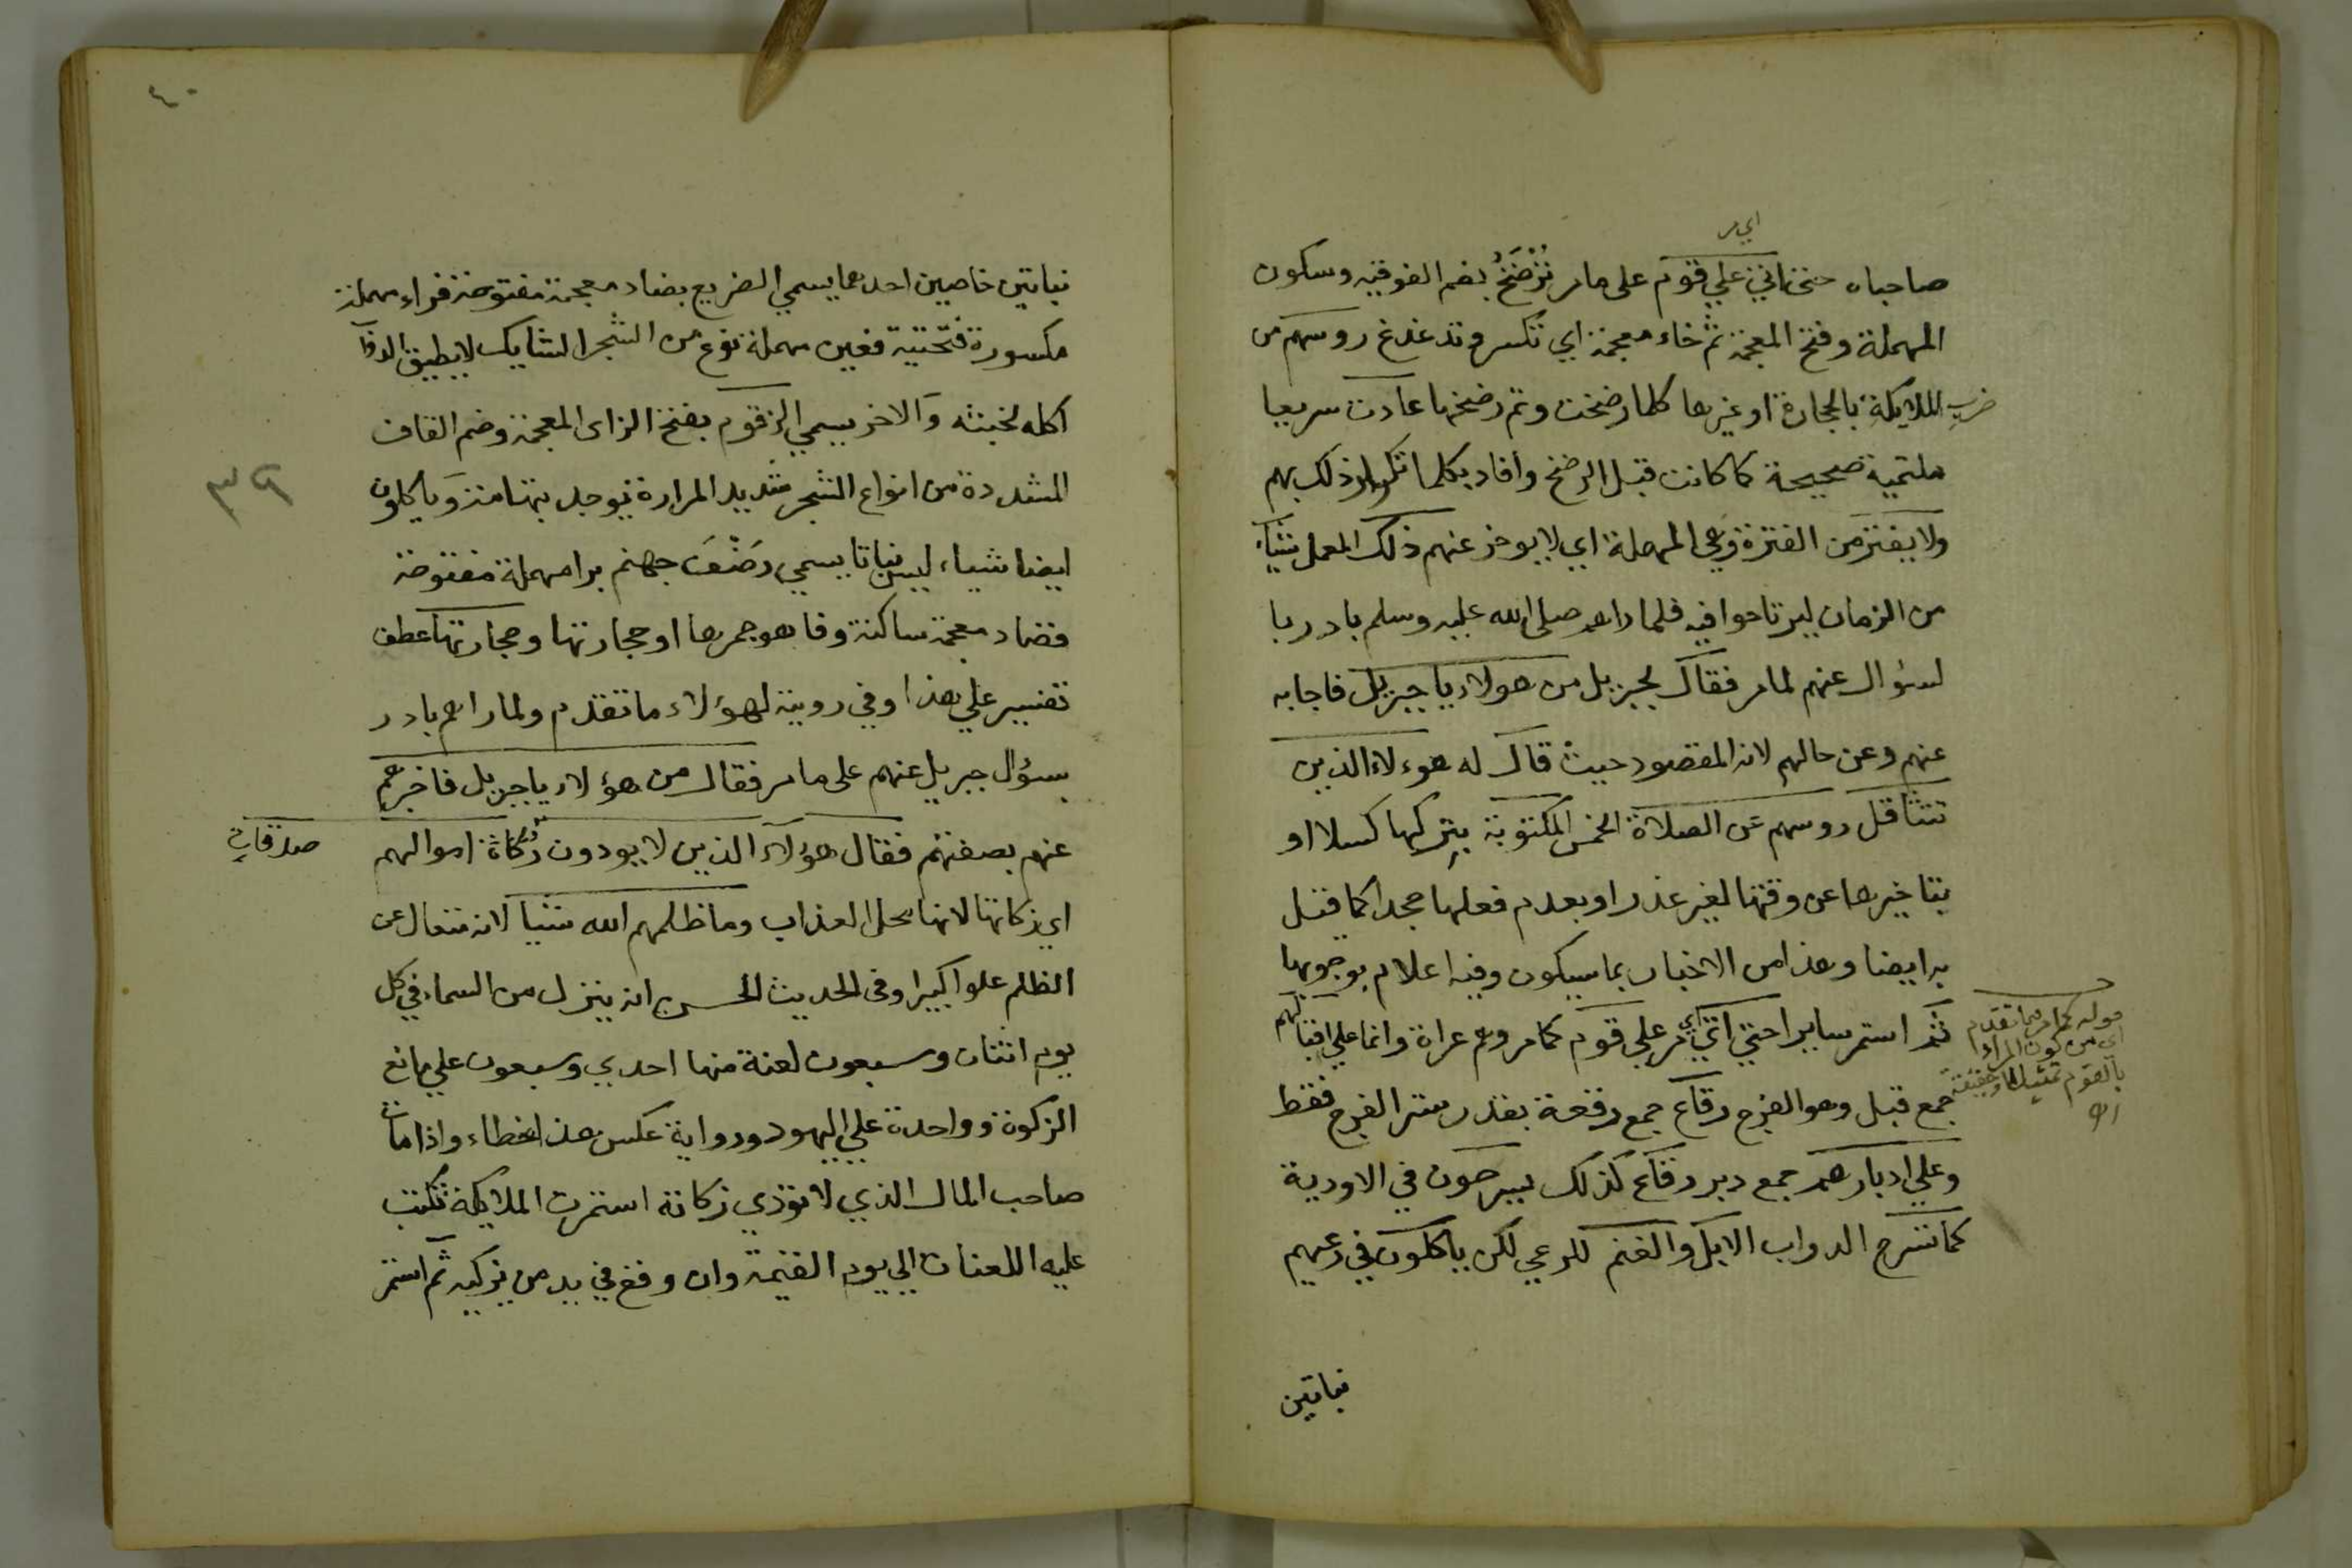 اي مر
صاحباه حتى اتي على قوم على مامر تُرْضَخُ بضم الفوقيه وسكون
المهملة وفتح المعجمة ثم خاء معجمة اي تكسر وتدغدغ روسهم من
ضرب الملايكة بالحجارة او غيرها كلما رضخت وتم رضخها عادت سريعا
ملتمية صحيحة كما كانت قبل الرضخ وافاد بكلما تكرار ذلك بهم
ولا يفتر من الفترة وهي المهملة اي لا يوخر عنهم ذلك العمل شيأ
من الزمان ليرتاحوا فيه فلما راهم صلى الله عليه وسلم بادر با
لسؤال عنهم لمامر فقال لجبريل من هولاء يا جبريل فاجابه
عنهم وعن حالهم لانه المقصود حيث قال له هوءلاء الذين
تتثاقل روسهم عن الصلاة الخمس المكتوبة بتركها كسلا او
بتاخيرها عن وقتها لغير عذر او بعدم فعلها جحدا كما قيل
به ايضا وهذا من الاخبار بما سيكون وفيه اعلام بوجوبها
ثم استمر سايرا حتى اتي اي مر على قوم كمامر وهم عراة وانما على اقبالهم
جمع قبل وهو الفرج رقاع جمع رقعة بقدر ستر الفرج فقط
وعلي ادبارهم جمع دبر رقاع كذلك يسرحون في الاودية
كما تسرح الدواب الابل والغنم للرعي لكن ياكلون في رعيهم
قوله كمامر فيما تقدم
اي من كون المراد
بالقوم تمثيلا او حقيقة
اه
نباتين
٤٠
نباتين خاصين احدهما يسمي الضريع بضاد معجمة مفتوحة فراء مهملة
مكسورة فتحتية فعين مهملة نوع من الشجر الشايك لا يطيق الدواب
اكله لخبثه والاخر يسمي الزقوم بفتح الزاى المعجمة وضم القاف
المشددة من انواع الشجر شديد المرارة يوجد بتهامة وياكلون
٣٩
ايضا شياء ليس نباتا يسمي رَضْفَ جهنم برا مهملة مفتوحة
فضاد معجمة ساكنة وفا هو جمرها او حجارتها وحجارتها عطف
تفسير علي هذا وفي روية لهؤلاء ما تقدم ولما راهم بادر
بسؤال جبريل عنهم على مامر فقال من هؤلاء يا جبريل فاخبرهم
عنهم بصفتهم فقال هؤلاء الذين لا يودون زكاة اموالهم
صدقات
اي زكاتها لانها محل العذاب وما ظلمهم الله شيأ لانه تعال عن
الظلم علوا كبيرا وفى الحديث الحسن انه ينزل من السماء في كل
يوم اثنان وسبعون لعنة منها احدي وسبعون علي مانع
الزكوة وواحدة علي اليهود ورواية عكس هذا خطاء واذا مات
صاحب المال الذي لا تؤدي زكاته استمرت الملايكة تكتب
عليه اللعنات الي يوم القيمة وان وقع في يد من يزكيه ثم استمر